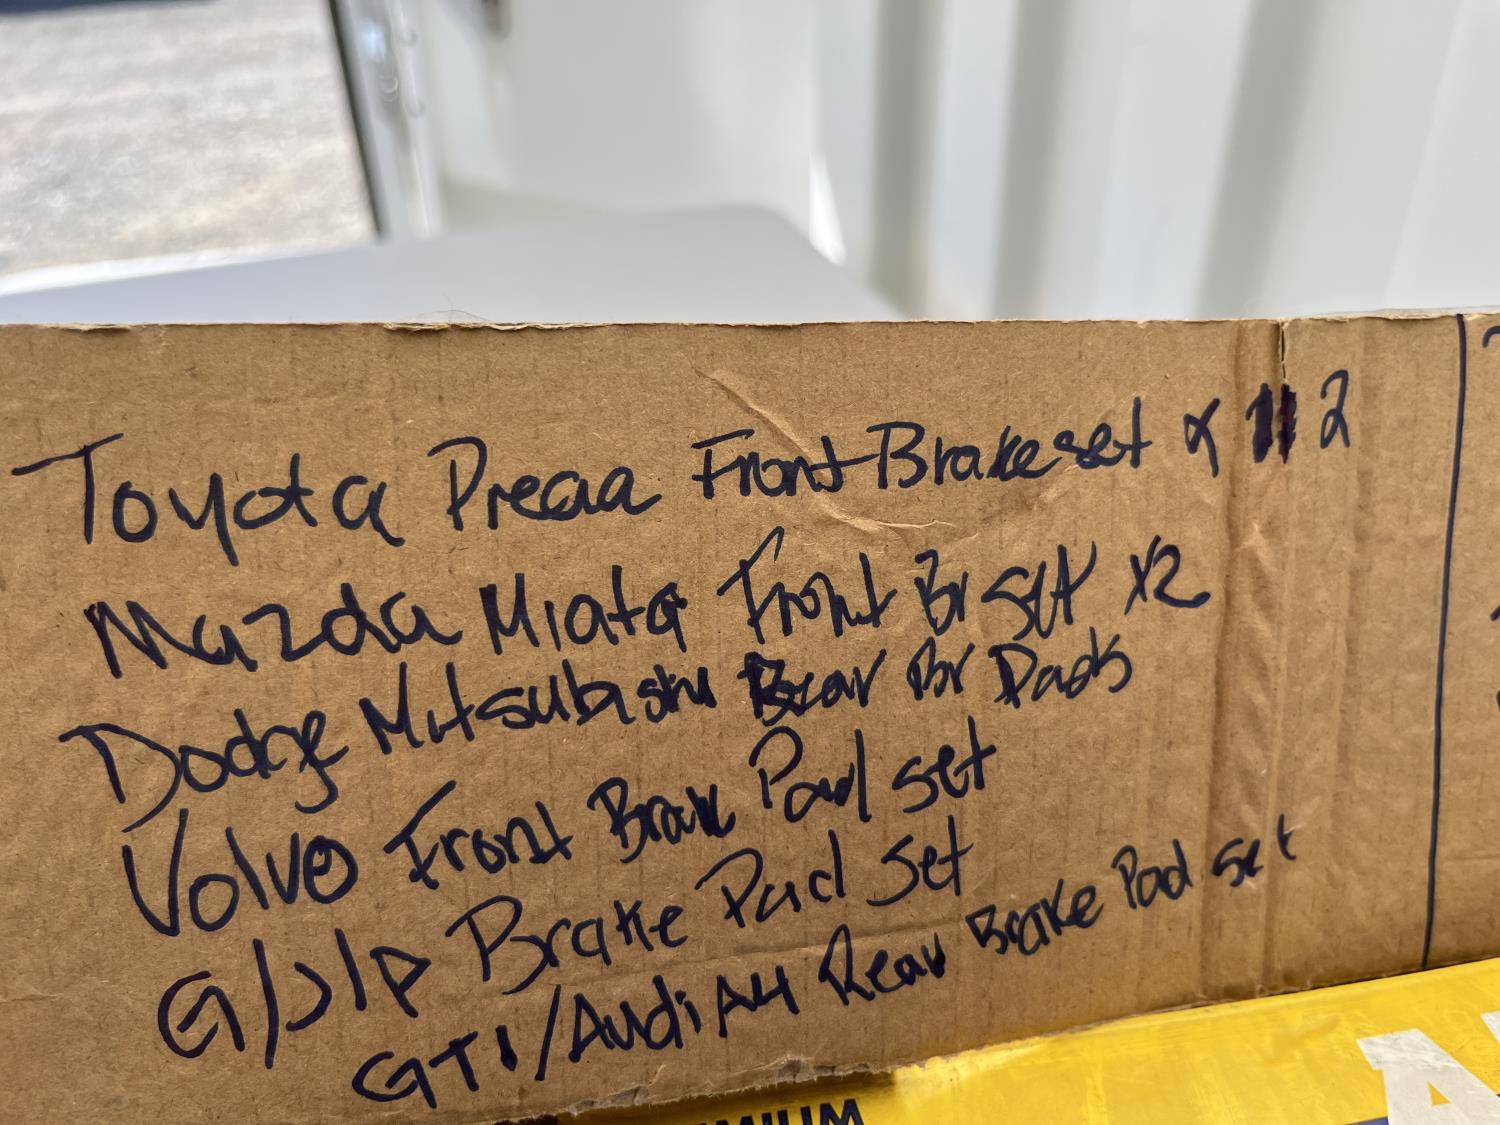 Toyota Preaa Front Brake set x 2
Mazda Miata Front Br set x2
Dodge Mitsubishi Rear Br Pads
Volvo Front Brake Pad set
G/J/P Brake Pad Set
GTI/Audi A4 Rear Brake Pad set
EMIUM
A